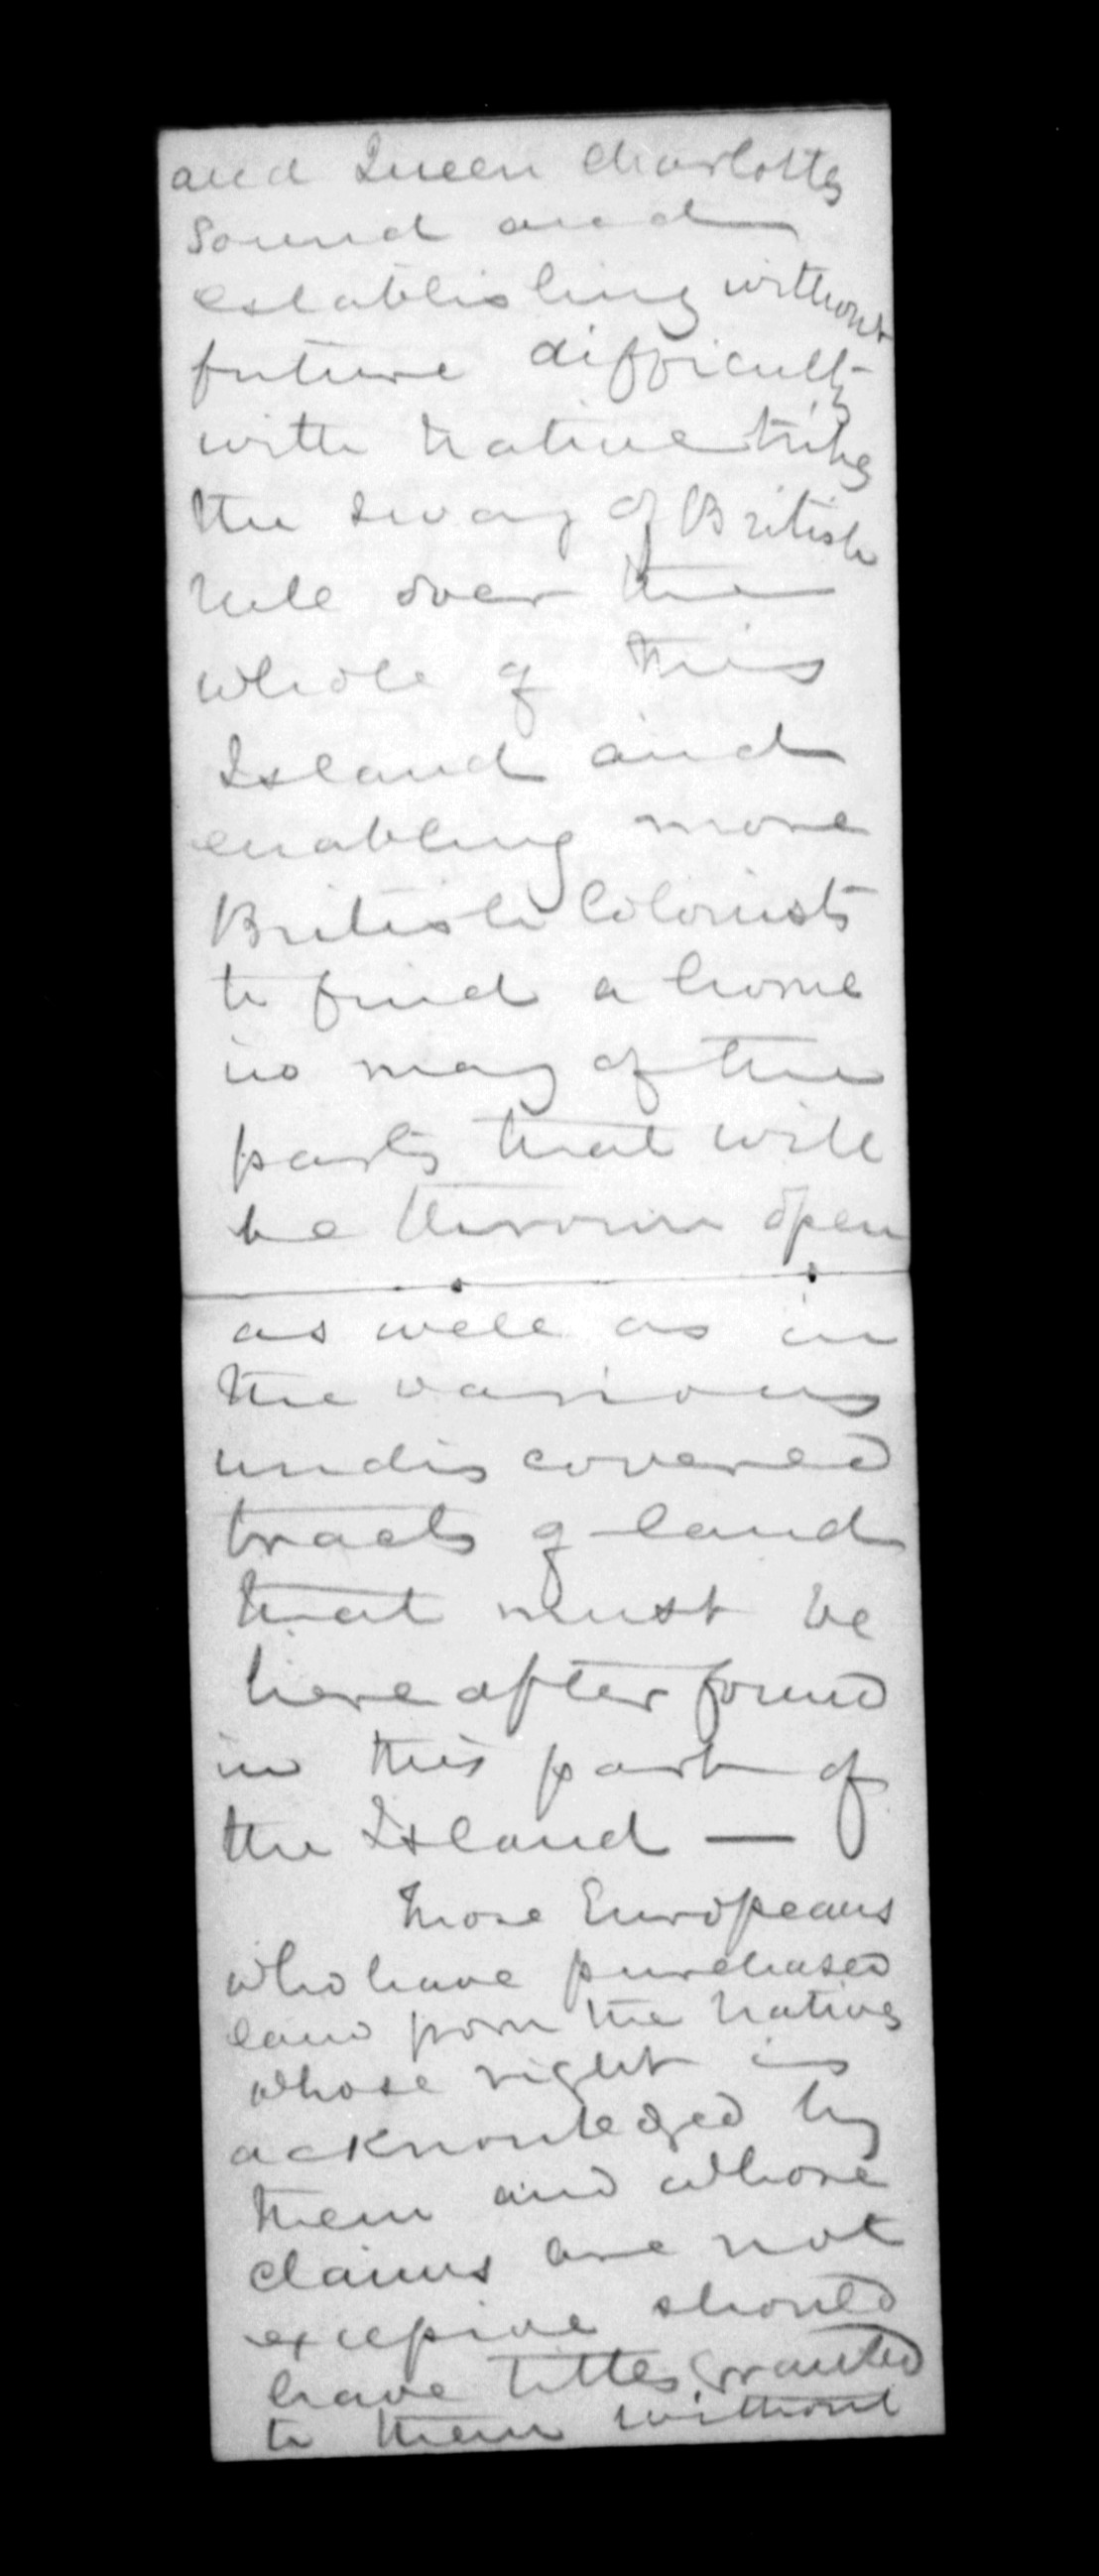 and Queen Charlottes
Sound and
establishing without
future difficulty
with Native tribes
the sway of British
rule over the
whole of this
Island and
enabling more
British Colonists
to find a home
in many of the
parts that will
be thrown open
as well as in
the various
undiscovered
tracts of land
that must be
hereafter found
in this part of
the Island —
Those Europeans
who have purchased
land from the Natives
whose right is
acknowledged by
them and whose
claims are not
excessive should
have titles granted
to them without